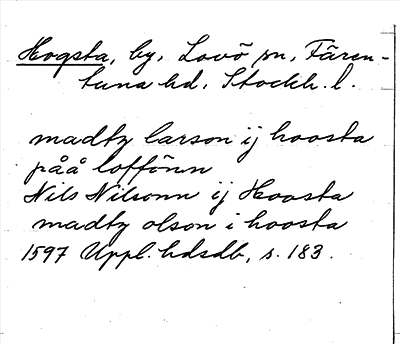 Hogsta, by, Lovö sn, Fären-
tuna hd, Stockh. l.
madtz larson ij hoosta
påå loffönn
Nils Nilsonn ij Hoosta
madtz olson i hoosta
1597 Uppl. hdsdb, s. 183.